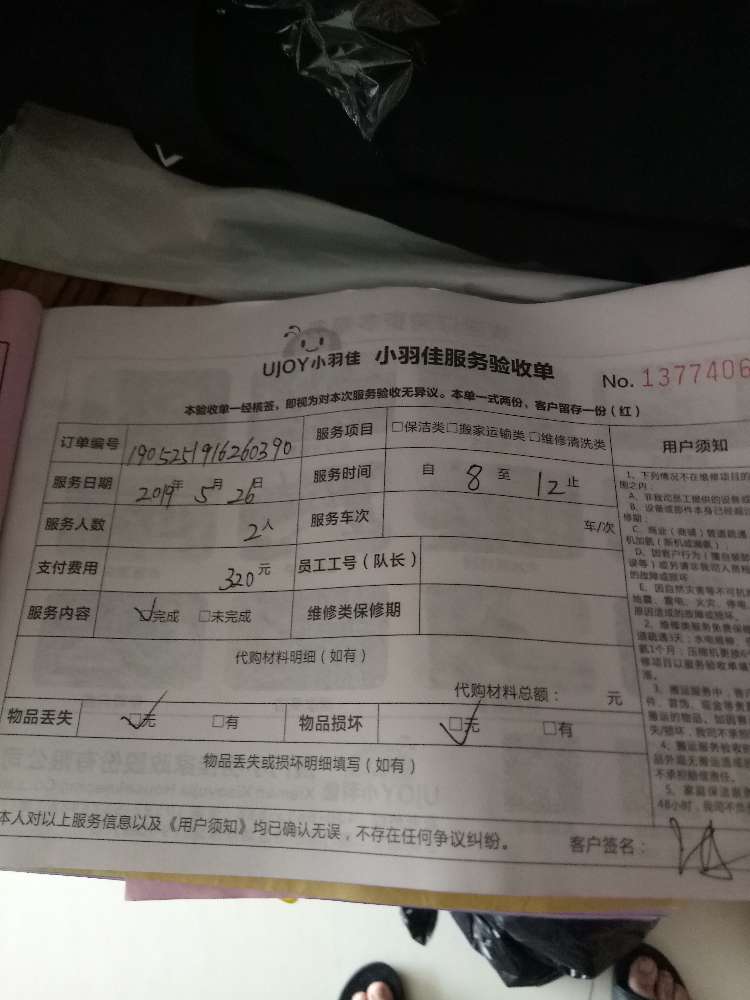 UJOY小羽佳 小羽佳服务验收单 No. 1377406
本验收单一经核签，即视为对本次服务验收无异议。本单一式两份，客户留存一份（红）
订单编号 1905251916260390 服务项目 □保洁类□搬家运输类□维修清洗类 用户须知
服务日期 2019年5月26日 服务时间 自 8 至 12 止
服务人数 2人 服务车次 车/次
支付费用 320元 员工工号（队长）
服务内容 □完成 □未完成 维修类保修期
代购材料明细（如有）
代购材料总额： 元
物品丢失 □无 □有 物品损坏 □无 □有
物品丢失或损坏明细填写（如有）
本人对以上服务信息以及《用户须知》均已确认无误，不存在任何争议纠纷。 客户签名：
1、下列情况不在维修项目的
A、非我司员工提供的设备或
B、设备或部件本身已经超过
修期；
C、商业（商铺）管道疏通
D、因客户行为（擅自装
的故障或损坏
E、因自然灾害等不可抗
地震、雷电、火灾、停电
原因造成的故障或损坏。
2、维修类服务免费保修
3、搬运服务中，
件、首饰、现金等贵
搬运的物品，如因
失/损坏，我司不承担
4、搬运服务验收
品外观无搬运造成
不承担赔偿责任。
5、家庭保洁服务
48小时，我司不负